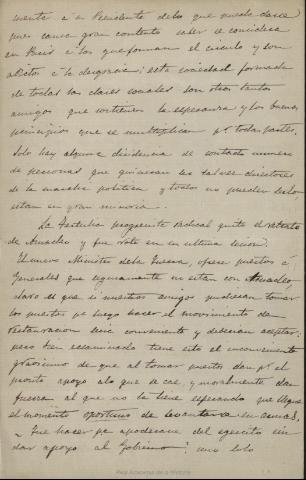 mente á su Presidente debo que puede darse
pues causa gran contento saber se considera
en Paris á los que forman el círculo y son
adictos á la desgracia; esta sociedad formada
de todas las clases sociales son otros tantos
amigos que sostienen la esperanza y los buenos
principios que se multiplican pr todas partes.
Solo hay alguna disidencia de contado numero
de personas que quisieran ser tal vez directores
de la marcha politica y todos no pueden serlo,
estan en gran minoria.
La Tertulia progresista radical quitó el retrato
de Amadeo y fue roto en su última sesion.
El nuevo Ministro dela Guerra, ofrece puestos á
Generales que seguramente no estan con Amadeo,
claro es que si nuestros amigos pudiesen tomar
los puestos pa luego hacer el movimiento de
restauracion seria conveniente y deberian aceptar;
pero bien examinado tiene esto el inconveniente
grávisimo de que al tomar puestos dan pr el
pronto apoyo alo que se cae, y moralmente dan
fuerza al que no la tiene esperando que llegue
el momento oportuno de levantarse en armas,
¿Que hacer pa apoderarse del egercito sin
dar apoyo al Gobierno? uno solo
Real Academia de la Historia